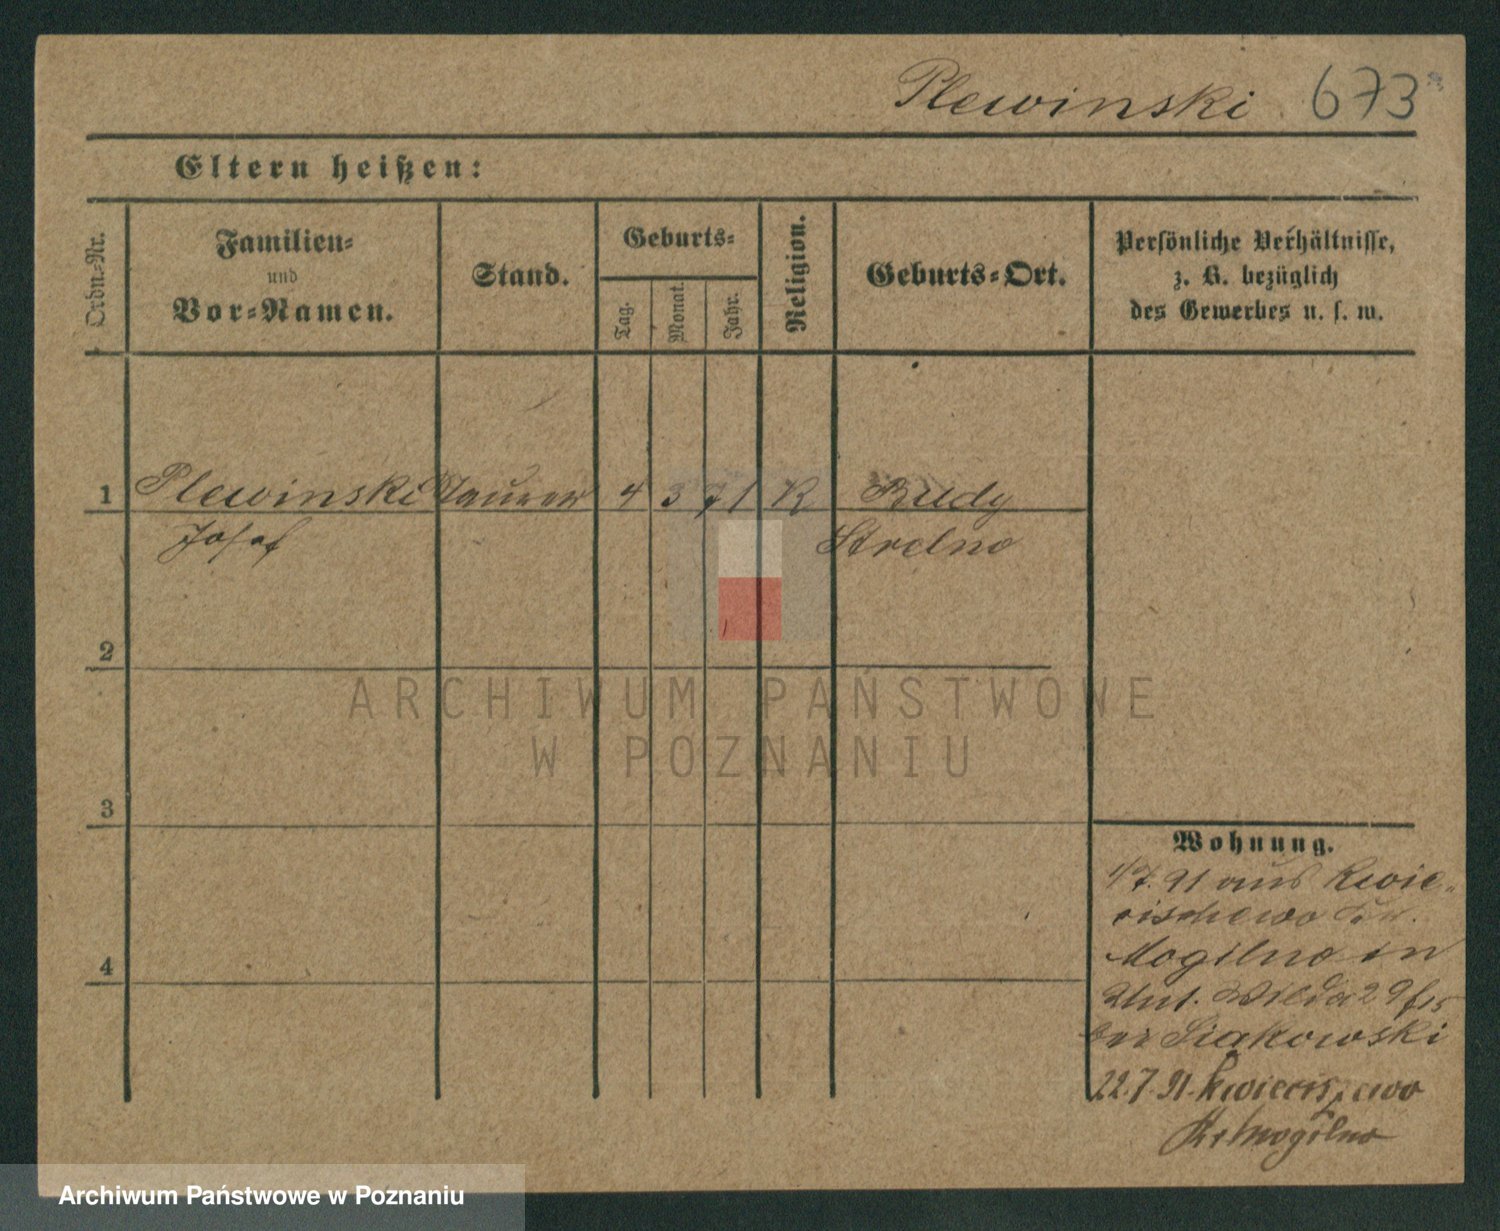 Plewinski 673
Eltern heißen:
Ordn.=Nr.
Familien=
und
Vor=Namen.
Stand.
Geburts=
Tag.
Monat.
Jahr.
Religion.
Geburts=Ort.
Persönliche Verhältnisse,
z. B. bezüglich
des Gewerbes u. s. w.
1 Plewinski Maurer 4 3 71 K Rudy
Josef Strelno
2
3
4
Wohnung.
1/7. 91 aus Kwie=
cischewo
Mogilno in
Unt. Wilda 29
bei Siakowski
22.7.91. Kwieciszewo
Kr. Mogilno
ARCHIWUM PAŃSTWOWE
W POZNANIU
Archiwum Państwowe w Poznaniu